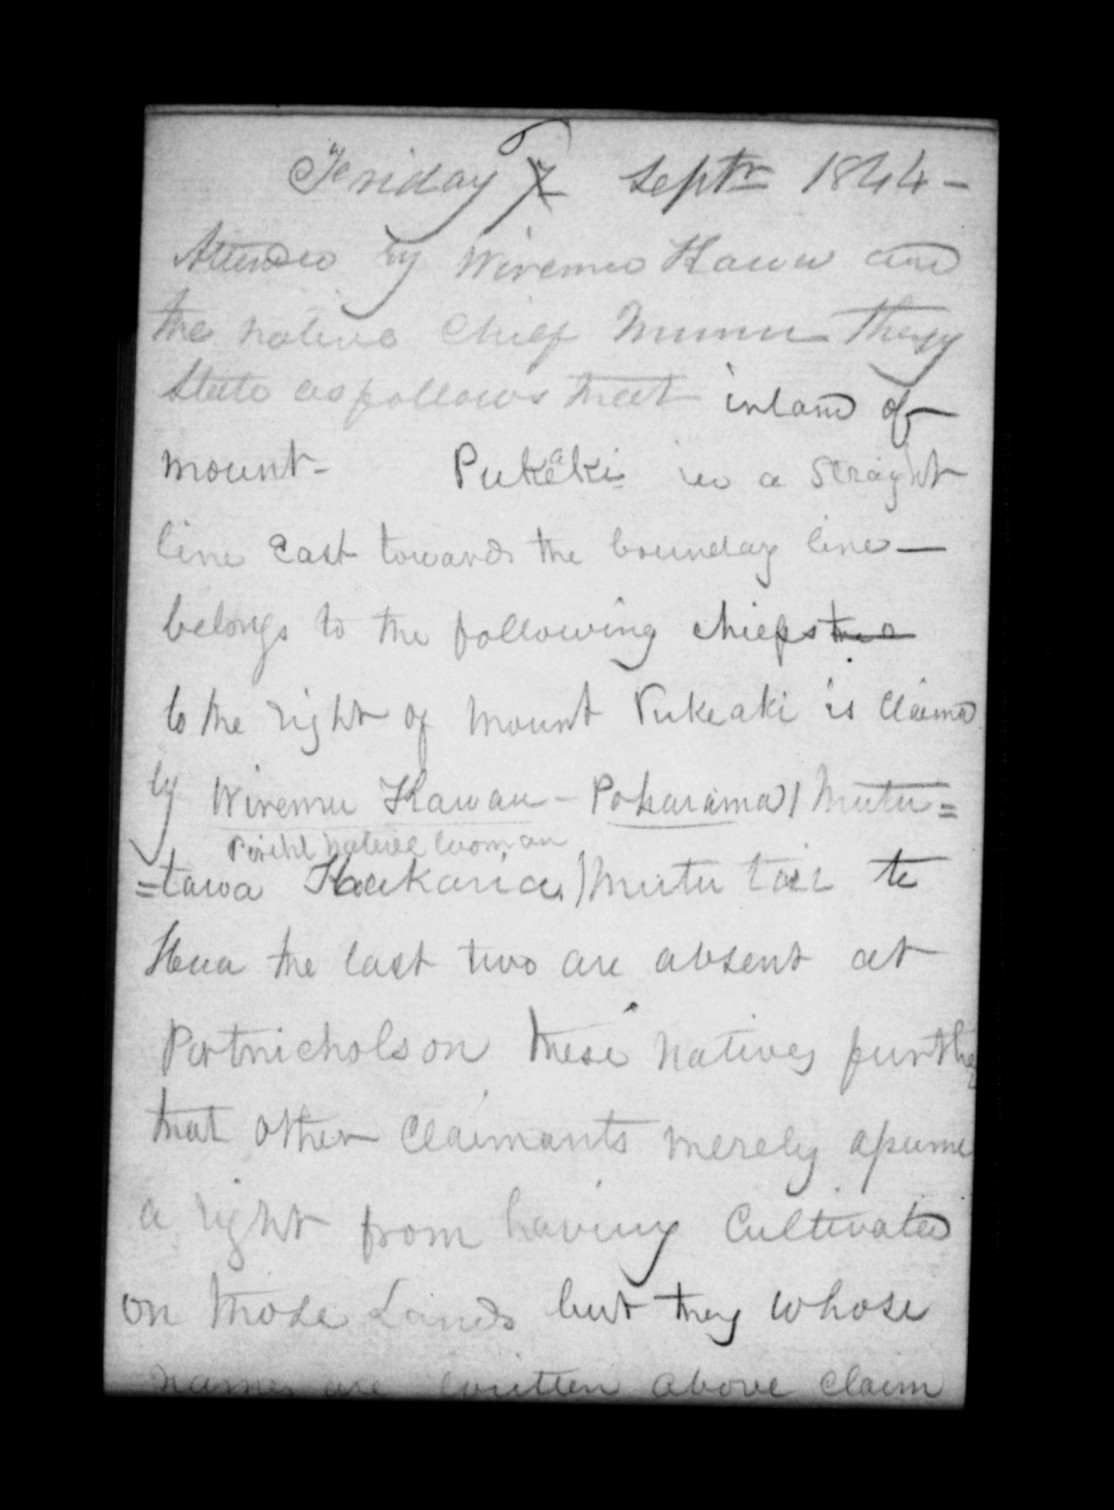 Friday 6 Septr 1844 -
Attended by Wiremu Kawau and
the native Chief Mumu They
State as follows that inland of
mount - Pukeaki in a Straight
line East towards the bounday line —
belongs to the following chiefs the
to the right of Mount Pukeaki is Claimd
by Wiremu Kawau - Pokarama / Mutu=
native woman
=tawa / Mutu te
Hua the last two are absent at
Portnicholson these natives further
that other Claimants merely assume
a right from having Cultivated
on those Lands but they whose
names are written above claim